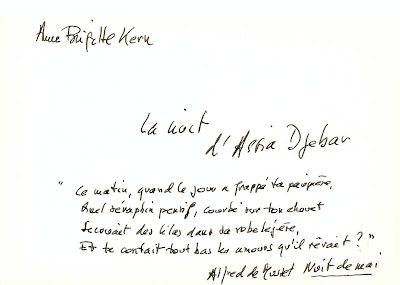 Anne Brigitte Kern
La nuit
d'Assia Djebar
"Ce matin, quand le jour a frappé ta paupière,
Quel séraphin pensif, courbé sur ton chevet
Secouait des lilas dans sa robe légère,
Et te contait tout bas les amours qu'il rêvait ?"
Alfred de Musset Nuit de mai